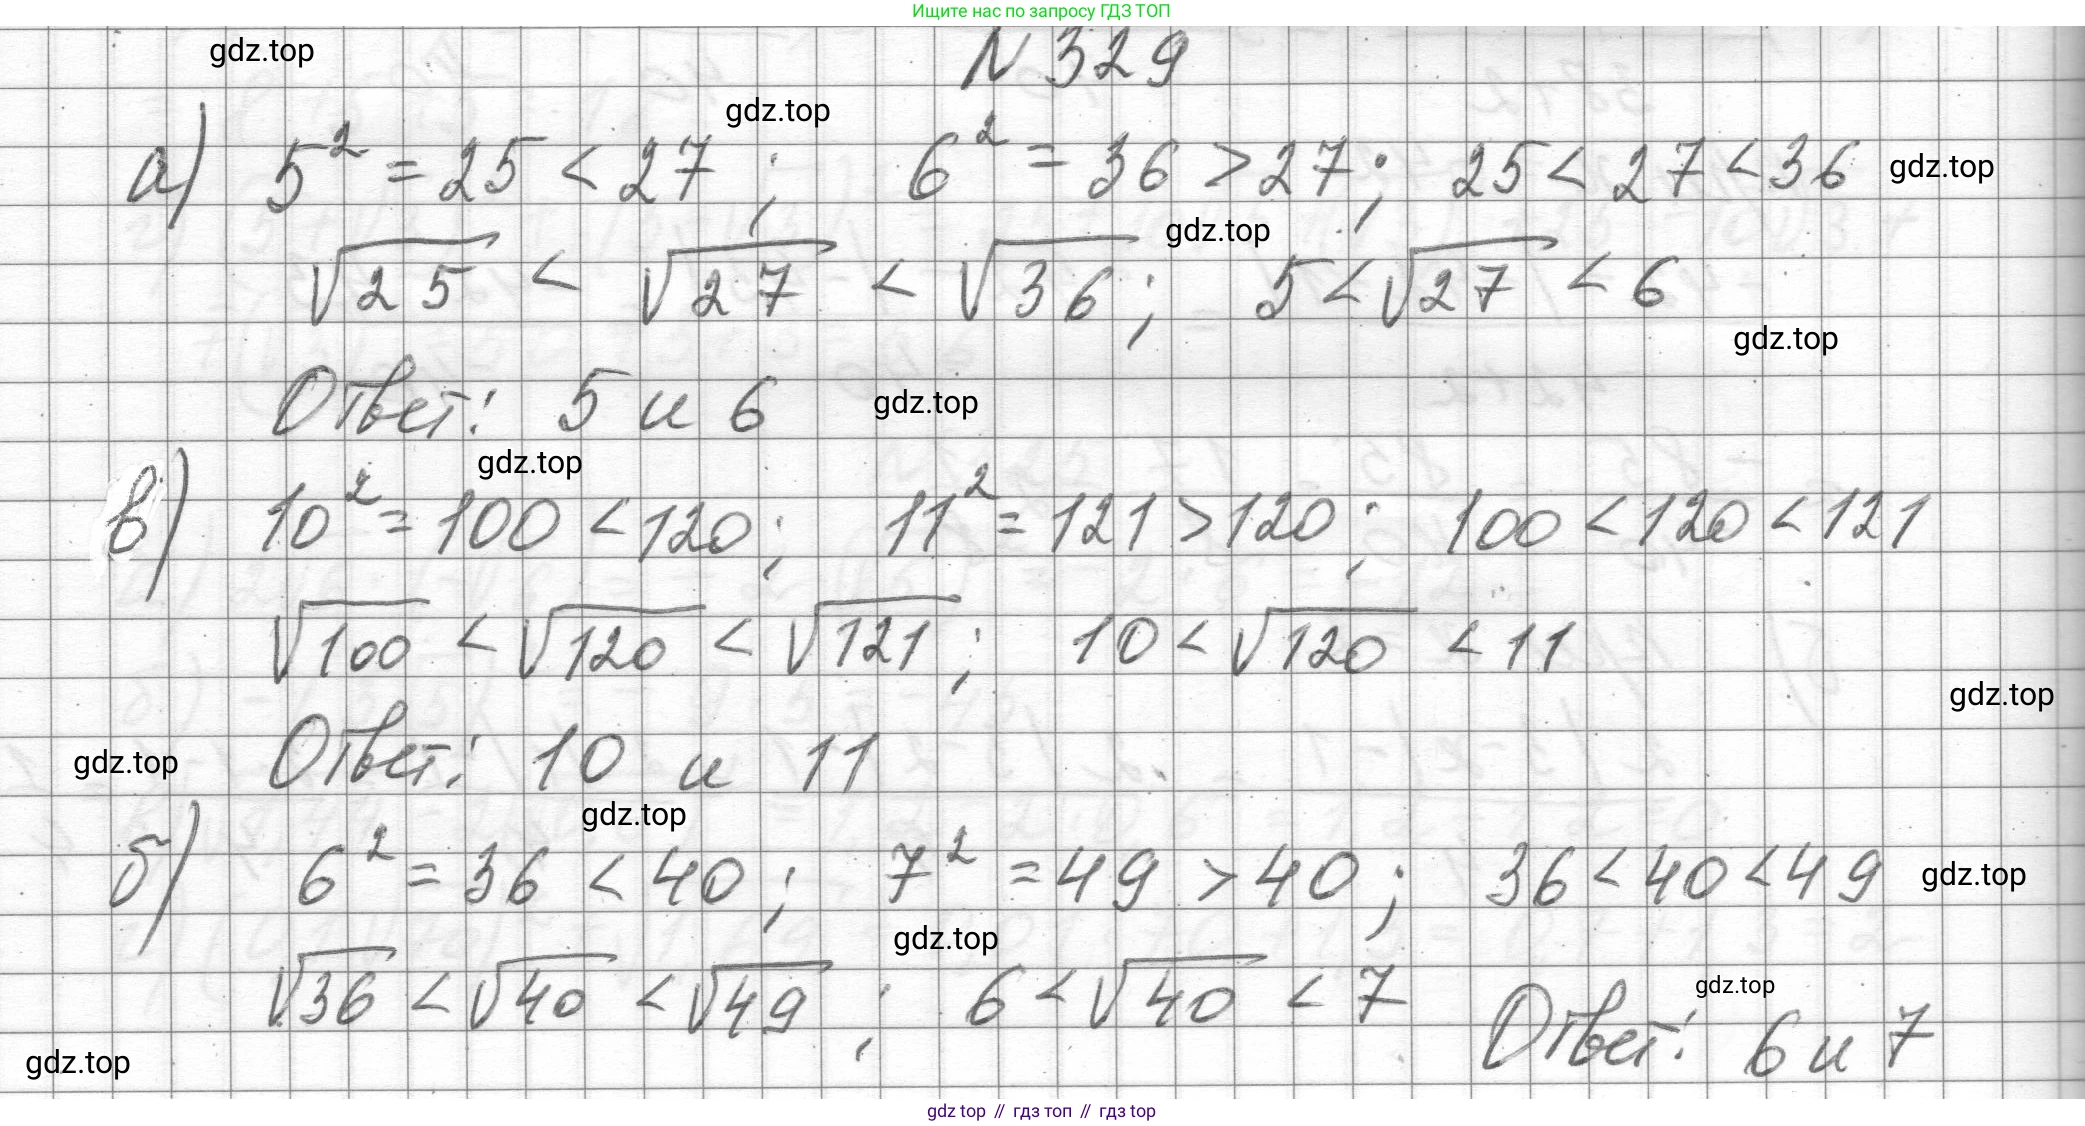 Ищите нас по запросу ГДЗ ТОП
N 329
gdz.top
gdz.top
а) 5² = 25 < 27 ; 6² = 36 > 27 ; 25 < 27 < 36
gdz.top
gdz.top
√25 < √27 < √36 ; 5 < √27 < 6
gdz.top
Ответ: 5 и 6
gdz.top
gdz.top
в) 10² = 100 < 120 ; 11² = 121 > 120 ; 100 < 120 < 121
√100 < √120 < √121 ; 10 < √120 < 11
gdz.top
Ответ: 10 и 11
gdz.top
gdz.top
б) 6² = 36 < 40 ; 7² = 49 > 40 ; 36 < 40 < 49
gdz.top
gdz.top
√36 < √40 < √49 ; 6 < √40 < 7
gdz.top
Ответ: 6 и 7
gdz.top
gdz top // гдз топ // гдз top